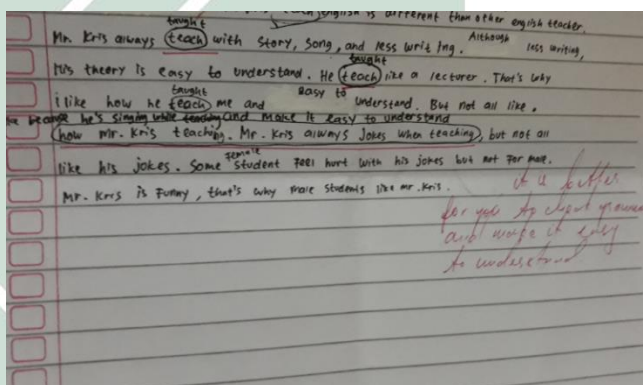 teach english is different than other english teacher.
taught
Mr. Kris always teach with story, song, and less writing. Although less writing,
taught
His theory is easy to understand. He teach like a lecturer. That's why
taught easy to
i like how he teach me and understand. But not all like.
because he's singing while teaching and make it easy to understand
how mr. Kris teaching. Mr. Kris always Jokes when teaching, but not all
female
like his jokes. Some student feel hurt with his jokes but not for male.
Mr. Kris is Funny, that's why male students like mr. Kris.
it is better
for you to
and make it easy
to understand